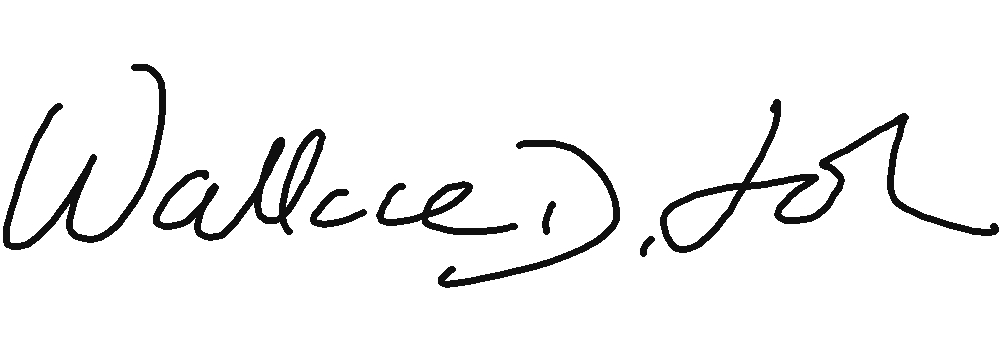 Wallace D. Loh